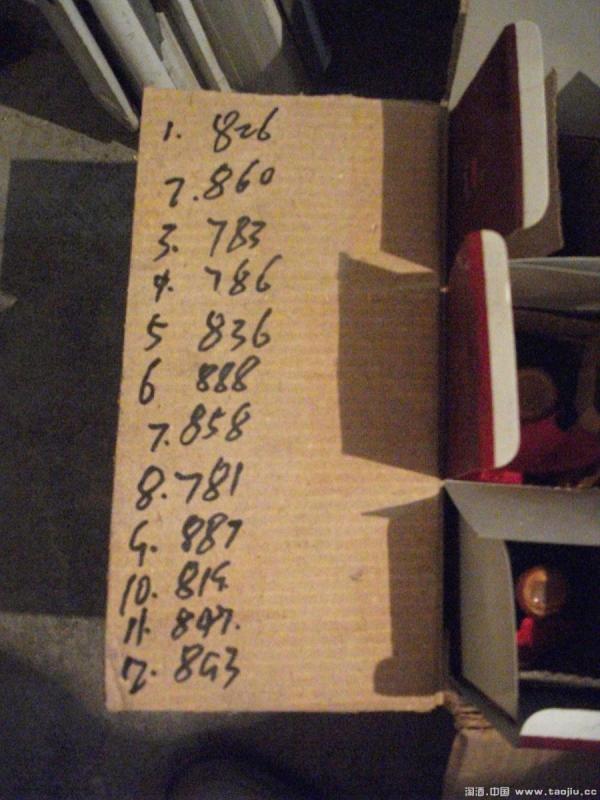 1. 826
2. 860
3. 783
4. 786
5 836
6 888
7. 858
8. 781
9. 887
10. 819.
11. 897.
12. 893
淘酒.中国 www.taojiu.cc